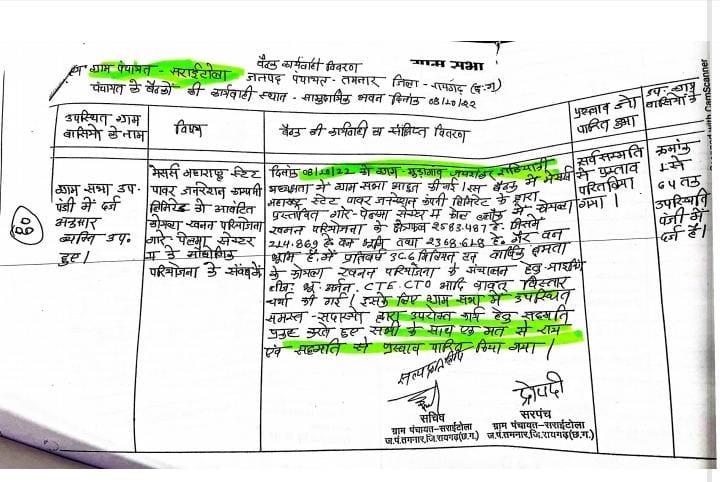 ग्राम सभा
बैठक कार्यवाही विवरण
ग्राम पंचायत - सराईटोला जनपद पंचायत - तमनार जिला - रायगढ़ (छ.ग)
पंचायत के बैठकों की कार्यवाही स्थान - सामुदायिक भवन दिनांक 08/10/22
उपस्थित ग्राम
वासियों के नाम
विषय
बैठक की कार्यवाही का संक्षिप्त विवरण
प्रस्ताव जो
पारित हुआ
उप. ग्राम
वासियों के
ग्राम सभा उप.
पंजी में दर्ज
अनुसार
व्यक्ति उप.
हुए।
मेसर्स महाराष्ट्र स्टेट
पावर जनरेशन कम्पनी
लिमिटेड को आवंटित
कोयला खनन परियोजना
गारे पेलमा सेक्टर
के संबंध में
दिनांक 08/10/22 को ग्राम - मुड़ागांव
अध्यक्षता में ग्राम सभा आहूत की गई। इस बैठक में मेसर्स
महाराष्ट्र स्टेट पावर जनरेशन कंपनी लिमिटेड के द्वारा
प्रस्तावित गारे - पेलमा सेक्टर कोल ब्लॉक में कोयला
खनन परियोजना के क्षेत्रफल 2583.487 हे. जिसमें
214.869 हे. वन भूमि तथा 2368.618 हे. गैर वन
भूमि है। में प्रतिवर्ष वार्षिक क्षमता
के कोयला खनन परियोजना के संचालन हेतु
भू-अर्जन, CTE, CTO आदि बाबत् विस्तार
चर्चा की गई। इसके लिए ग्राम सभा में उपस्थित
समस्त - सदस्यों द्वारा उपरोक्त कार्य हेतु सहमति
प्रकट करते हुए सभी के साथ एक मत से राय
एवं सहमति से प्रस्ताव पारित किया गया।
सर्वसम्मति
से प्रस्ताव
पारित किया
गया।
क्रमांक
1 से
64 तक
उपस्थिति
पंजी में
दर्ज है।
सत्यप्रतिलिपि
द्रोपदी
सचिव
ग्राम पंचायत-सराईटोला
ज.पं.तमनार,जि.रायगढ़(छ.ग.)
सरपंच
ग्राम पंचायत-सराईटोला
ज.पं.तमनार,जि.रायगढ़(छ.ग.)
with CamScanner